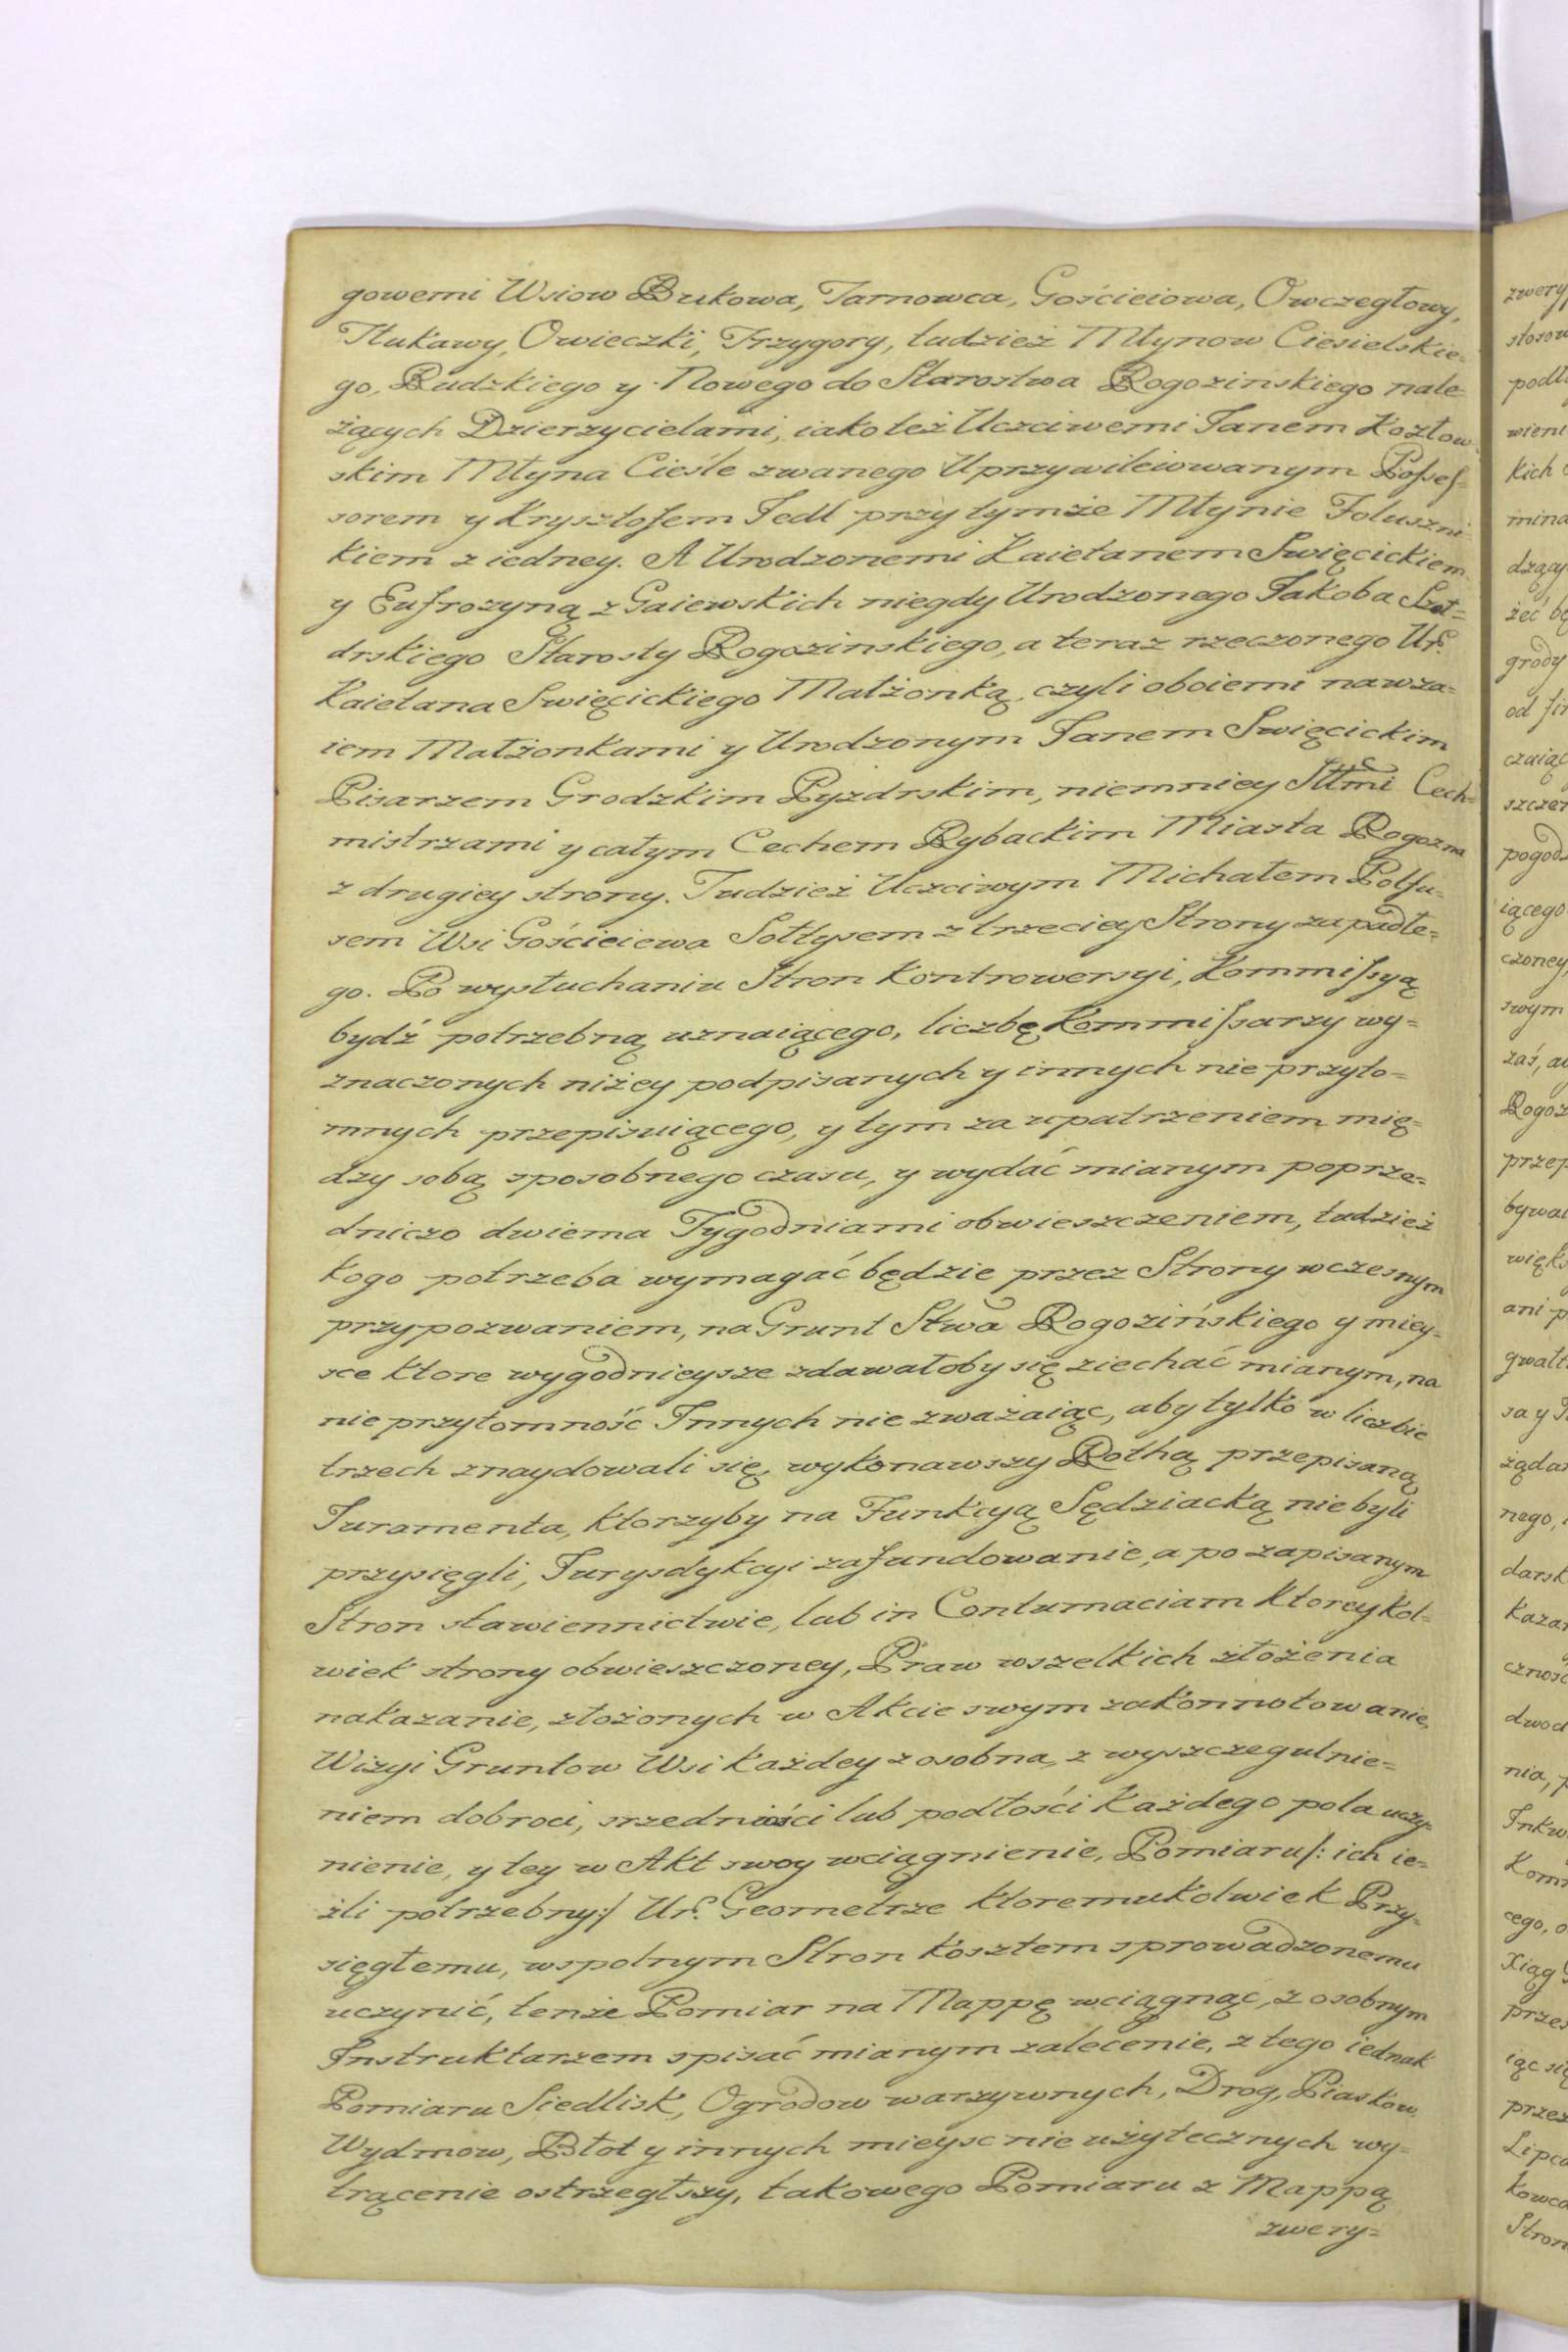 gowemi Wsiow Bukowa, Tarnowca, Gościeiowa, Owczegłowy,
Tłukawy, Owieczki, Trzygory, tudzież Młynow Ciesielskie-
go, Rudzkiego y Nowego do Starostwa Rogozinskiego nale-
żących Dzierzycielami, iako też Uczciwemi Janem Kozłow-
skim Młyna Cieśle zwanego Uprzywileiowanym Possef-
sorem y Krysztofem Jedl przy tymże Młynie Foluszni-
kiem z iedney. A Urodzonemi Kaietanem Swięcickiem
y Eufrozyną z Gaiewskich niegdy Urodzonego Jakoba Szoł=
drskiego Starosty Rogozinskiego, a teraz rzeczonego Ur.
Kaietana Swięcickiego Małżonką, czyli oboiemi nawza=
iem Małżonkami y Urodzonym Janem Swięcickim
Pisarzem Grodzkim Pyzdrskim, niemniey Sttmi Cech=
mistrzami y całym Cechem Rybackim Miasta Rogozna
z drugiey strony. Tudzież Uczciwym Michałem Polfu=
sem Wsi Gościeiewa Sołtysem z trzeciey Strony zapadłe=
go. Po wysłuchaniu Stron Kontrowersyi, Kommissyą
bydź potrzebną uznaiącego, liczbę Kommissarzy wy=
znaczonych niżey podpisanych y innych nie przyto=
mnych przepisuiącego, y tym za upatrzeniem mię=
dzy sobą sposobnego czasu, y wydać mianym poprze=
dniczo dwiema Tygodniami obwieszczeniem, tudzież
kogo potrzeba wymagać będzie przez Strony wczesnym
przypozwaniem, na Grunt Stwa Rogozińskiego y miey=
sce ktore wygodnieysze zdawałoby się ziechać mianym, na
nie przytomność Innych nie zważaiąc, aby tylko w liczbie
trzech znaydowali się, wykonawszy Rothą przepisaną
Juramenta, ktorzyby na Funkcyą Sędziacką nie byli
przysięgli, Jurysdykcyi zafundowanie, a po zapisanym
Stron stawiennictwie, lub in Contumaciam ktoreykol=
wiek strony obwieszczoney, Praw wszelkich złożenia
nakazanie, złożonych w Akcie swym zakonnotowanie,
Wizyi Gruntow Wsi każdey z osobna, z wyszczegulnie=
niem dobroci, srzedniości lub podłości każdego pola uczy=
nienie, y tey w Akt swoy wciągnienie, Pomiaru /: ich ie=
żli potrzebny :/ Ur. Geometrze ktoremukolwiek Przy=
sięgłemu, wspolnym Stron kosztem sprowadzonemu
uczynić, tenże Pomiar na Mappę wciągnąć, z osobnym
Instruktarzem spisać mianym zalecenie, z tego iednak
Pomiaru Siedlisk, Ogrodow warzywnych, Drog, Piaskow,
Wydmow, Błot y innych mieysc nie użytecznych wy=
trącenie ostrzegłszy, takowego Pomiaru z Mappą
zwery=
zwery
stosow
podł
wieni
kich
mina
dzący
żeć bę
grody
od
czaiąc
szczer
pogodz
iącego
czoney
swym
zaś, a
Rogoz
przep
bywa
więks
ani p
gwałt
sa y
żąda
nego,
darsk
kaza
cznoś
dwoc
nia, p
Inkw
Kom
cego, o
Xiąg
przes
iąc się
przez
Lipca
kowca
Stron